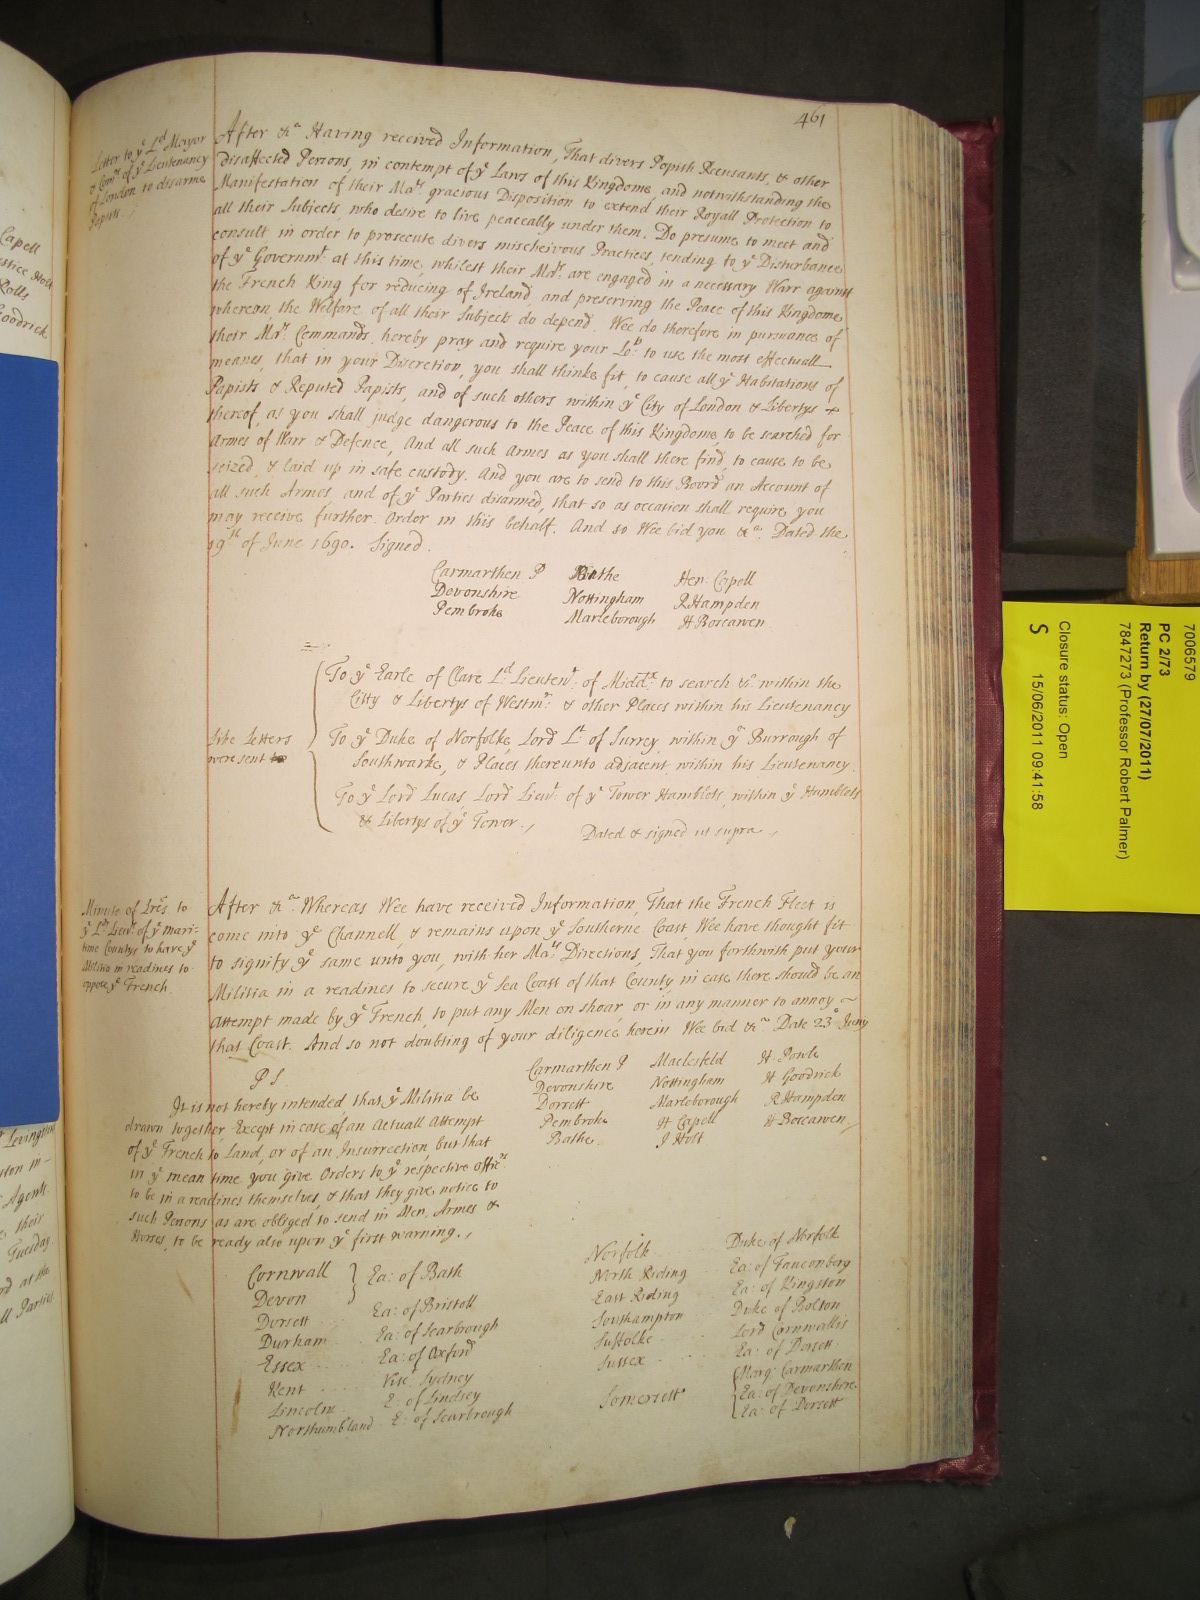 461
Letter to yͤ Lᵈ Mayor
& Comʳˢ of yͤ Lieutenancy
of London to disarme
Papists
After &ᵃ Having received Information, That divers Popish Recusants, & other
disaffected Persons, in contempt of yͤ Laws of this Kingdome, and notwithstanding the
Manifestation of their Maᵗˢ gracious Disposition to extend their Royall Protection to
all their Subjects, who desire to live peaceably under them. Do presume to meet and
consult in order to prosecute divers mischeivous Practices, tending to yͤ Disturbance
of yͤ Governmᵗ at this time, whilest their Maᵗˢ are engaged in a necessary Warr against
the French King for reducing of Ireland, and preserving the Peace of this Kingdome
whereon the Welfare of all their Subjects do depend. Wee do therefore in pursuance of
their Maᵗˢ Commands, hereby pray and require your Loᵖ to use the most effectuall
means, that in your Discretion, you shall thinke fit, to cause all yͤ Habitations of
Papists & Reputed Papists, and of such others within yͤ City of London & Libertys
thereof, as you shall judge dangerous to the Peace of this Kingdome, to be searched for
Armes of Warr & Defence, And all such Armes as you shall there find, to cause to be
seized, & laid up in safe custody. And you are to send to this Board an Account of
all such Armes, and of yͤ Parties disarmed, that so as occasion shall require, you
may receive further Order in this behalf. And so Wee bid you &ᵃ. Dated the
19ᵗʰ of June 1690. Signed.
Carmarthen P Bathe Hen: Capell
Devonshire Nottingham R Hampden
Pembroke Marleborough H Boscawen
Like Letters
were sent
To yͤ Earle of Clare Lᵈ Lieutenᵗ of Middˣ to search &ᶜ within the
Citty & Libertys of Westmʳ & other Places within his Lieutenancy
To yͤ Duke of Norfolke, Lord Lᵗ of Surrey within yͤ Burrough of
Southwarke, & Places thereunto adjacent within his Lieutenancy
To yͤ Lord Lucas Lord Lieuᵗ of yͤ Tower Hamblets, within yͤ Hamblets
& Libertys of yͤ Tower.
Dated & signed ut supra
Minute of Lrͤs to
yͤ Lᵈˢ Lieuᵗ of yͤ mari-
time Countys to have yͤ
Militia in readines to
oppose yͤ French
After &ᵃ Whereas Wee have received Information, That the French Fleet is
come into yͤ Channell, & remains upon yͤ Southerne Coast, Wee have thought fit
to signify yͤ same unto you, with her Maᵗˢ Directions, That you forthwith put your
Militia in a readines to secure yͤ Sea Coast of that County in case there should be an
attempt made by yͤ French, to put any Men on shoar, or in any manner to annoy
that Coast. And so not doubting of your diligence herein Wee bid &ᵃ Date 23ᵈ June
Carmarthen P Maclesfeld H. Powle
Devonshire Nottingham H Goodrick
Dorsett Marleborough R Hampden
Pembroke H Capell H Boscawen
Bathe J Holt
P S
It is not hereby intended, that yͤ Militia be
drawn together, Except in case of an Actuall Attempt
of yͤ French to Land, or of an Insurrection, but that
in yͤ mean time you give Orders to yͤ respective officʳˢ
to be in a readines themselves, & that they give notice to
such Persons as are obliged to send in Men, Armes &
Horses, to be ready also upon yͤ first warning.
Cornwall } Ea: of Bath
Devon
Dorsett Ea: of Bristoll
Durham Ea: of Scarbrough
Essex Ea: of Oxford
Kent Visᵗ Sydney
Lincoln E: of Lindsey
Northumbland E: of Scarbrough
Norfolk Duke of Norfolk
North Riding Ea: of Fauconberg
East Riding Ea: of Kingston
Southampton Duke of Bolton
Suffolke Lord Cornwallis
Sussex Ea: of Dorsett
Somersett Marq: Carmarthen
Ea: of Devonshire
Ea: of Dorsett
Capell
Rolls
Goodrick
Levington
Agents
their
Tuesday
ll Parties
7006579
PC 2/73
Return by (27/07/2011)
7847273 (Professor Robert Palmer)
Closure status: Open
S 15/06/2011 09:41:58